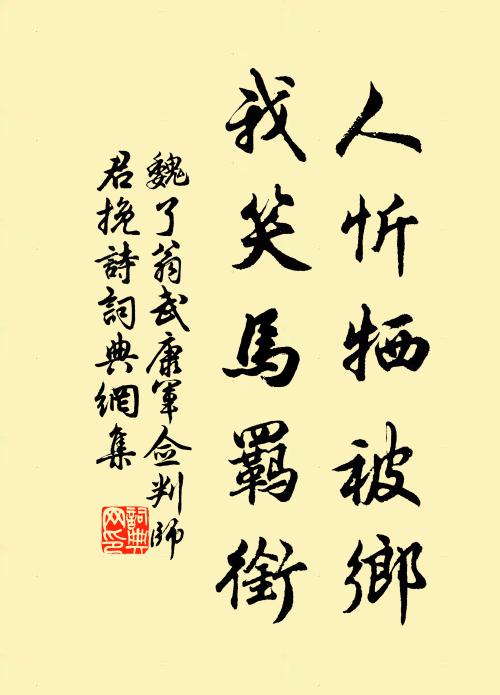 人忻牺被鄉
我笑馬羈銜
魏了翁武康軍僉判師
君挽詩詞典網集
詞典網印